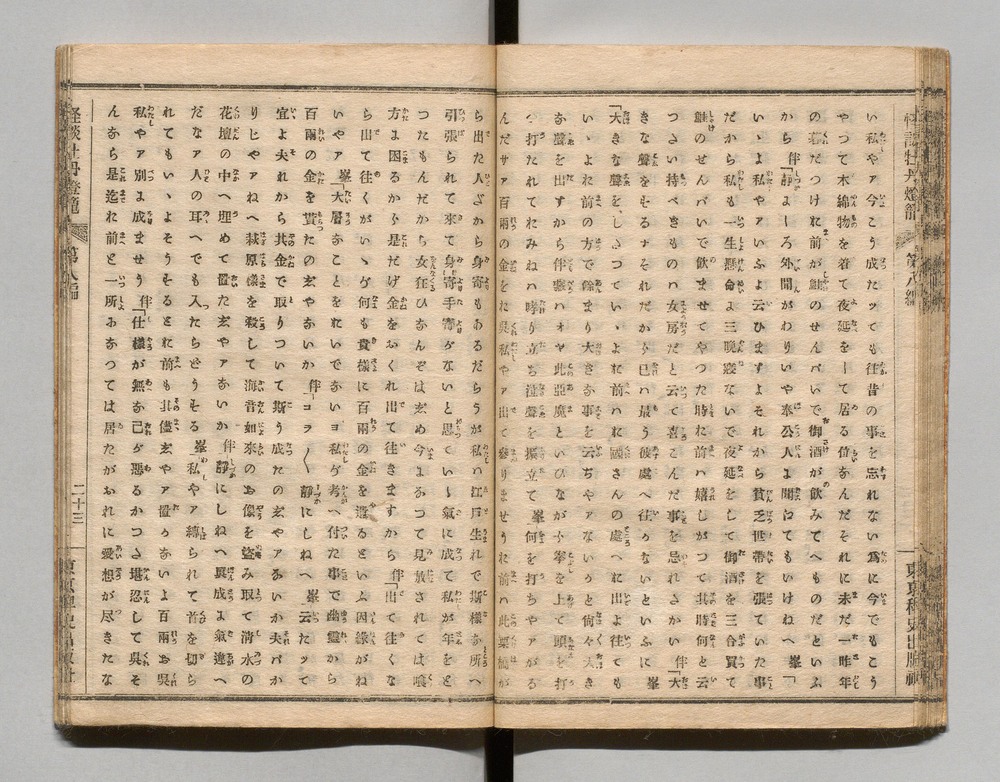 い私やア今こう成たッても往昔の事を忘れない為に今でもこう
やつて木綿物を着て夜延をして居る位なんだそれに未だ一昨年
の暮だつけお前が鮭のせんバいで御酒が飲みてへものだといふ
から 伴「静よしろ外聞がわりいや奉公人よ聞てもいけねへ 峯「
いゝよ私やアいふよ云ひますよそれから貧乏世帯を張ていた事
だから私も一生懸命よ三晩寝ないで夜延をして御酒を三合買て
鮭のせんバいで飲ませてやつた時お前ハ嬉しがつて其時何と云
つさい持べきもの女房だと云て喜こんだ事を忘れさかい 伴「大
きな聲をするナそれだから己ハ最う彼處へ往かないといふに 峯
「大きな聲をしさつていゝよお前ハお國さんの處へお出よ往ても
いゝよお前の方で餘まり大きな事を云ぢやアないかと尚々大き
な聲を出すから伴藏ハオヤ此亜魔といひながら拳を上て頭を打
つ打たれておみねハ哮り立ち泣聲を振立て 峯何を打ちやアがる
んだサア百兩の金をお呉私やア出て参りませうお前ハ此栗橋か
ら出た人だから身寄もあるだらうが私ハ江戸生れで斯様な所へ
引張られて來て身寄手寄がないと思ていゝ氣に成て私が年を取
つたもんだから女狂ひなんぞはじめ今まなつて見放されては喰
方ま困るから是だけ金をおくれ出て往きますから 伴「出て往くな
ら出て往くがいゝが何も貴様に百兩の金を遣るといふ因縁がね
いやア 峯「大層なことをおいでないヨ私が考へ付た事で幽靈から
百兩の金を貰たのじやないか 伴「コラ〱静にしねへ 峯云たッて
宜よ夫れから其金で取りついて斯う成たのじやアないか夫バか
りじやアねへ萩原様を殺して海音如來のお像を盗み取て清水の
花壇の中へ埋めて置たじやアないか 伴静にしねへ異成よ氣違へ
だなア人の耳へでも入たらどうする 峯私やア縛られて首を切ら
れてもいゝよそうするとお前も其儘じやア置かないよ百兩お呉
私やア別ま成ませう 伴「仕様が無な己が悪るかつさ堪忍して呉そ
んなら是迄お前と一所よなつては居たがおれに愛想が尽きたな
怪談牡丹燈籠 第八編 二十三